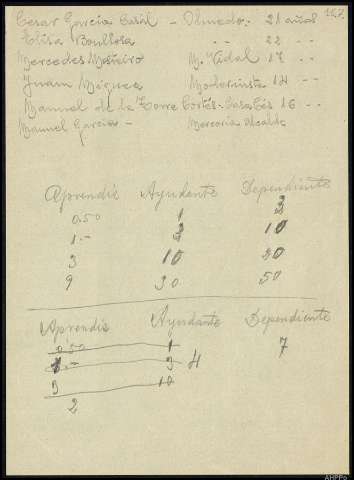 167.
Cesar Garcia Casal - Olmedo. 21 años
Elisa Boullosa " " 22 - -
Mercedes M. Vidal 17 - -
Juan Míguez Modernista 14 - -
Manuel de la Torre Cortés - Casa Cés 16 - -
Manuel Garcia - Merceria Alcalde
Aprendiz Ayudante Dependiente
0.50 1 3
1.- 3 10
3 10 20
9 30 50
Aprendiz Ayudante Dependiente
0.50 1 7
1.- 3 4
3 10
2
AHPPo